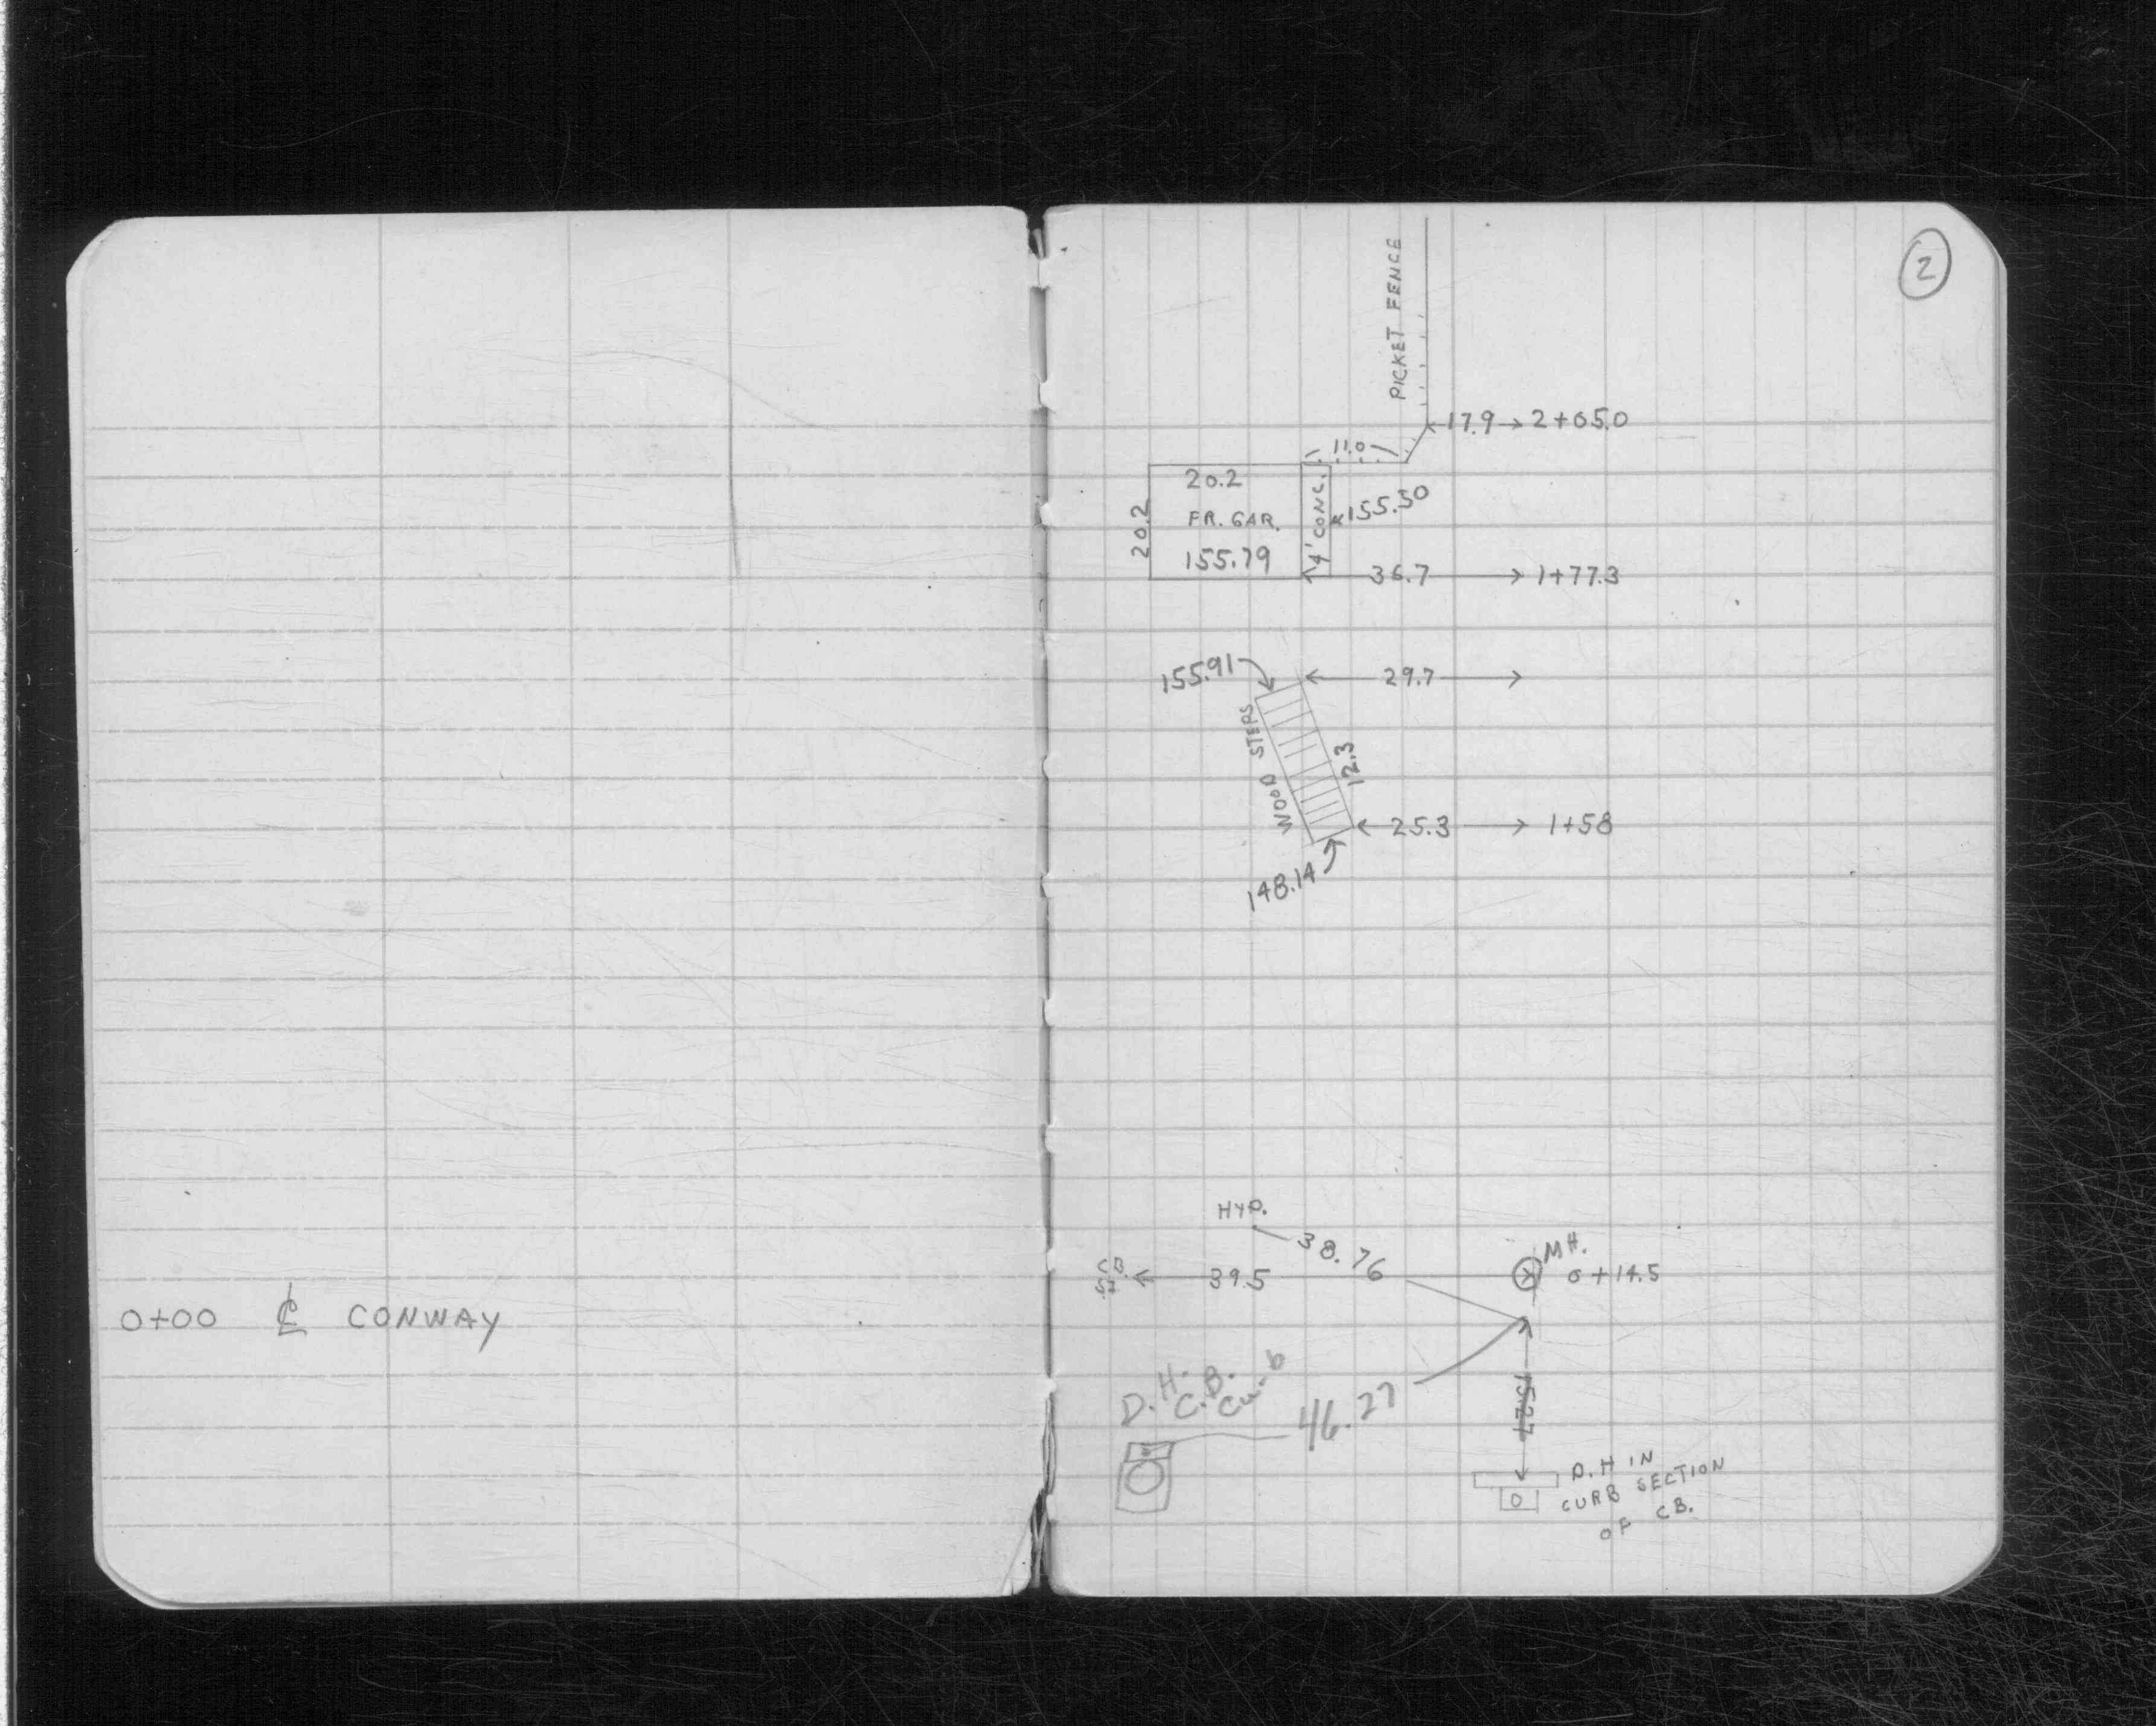 0+00 ℄ CONWAY
2
PICKET FENCE
17.9 2+05.0
11.0
20.2
20.2
FR. GAR.
155.79
4' CONC.
155.50
36.7 1+77.3
155.91
29.7
WOOD STEPS
12.3
25.3 1+58
148.14
HYD.
38.76
MH.
C.B.
39.5
0+14.5
D.H.
C.B.
Curb
46.27
15.27
D.H IN
CURB SECTION
OF CB.